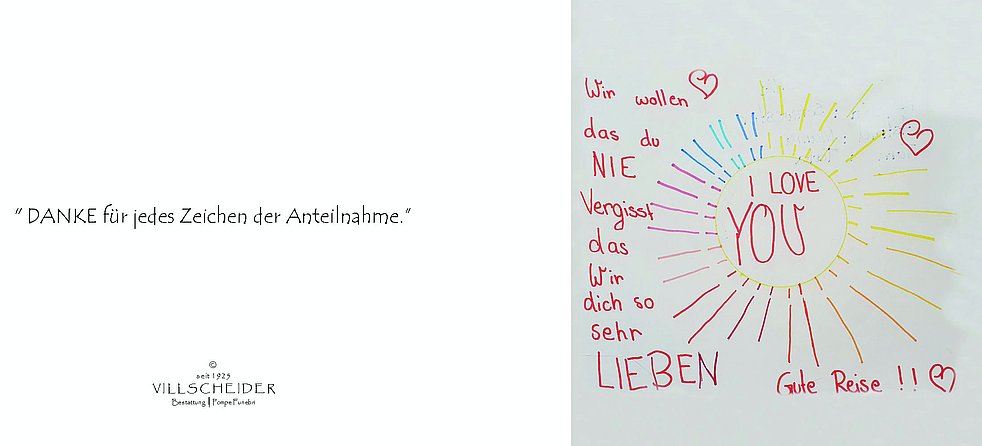 “ DANKE für jedes Zeichen der Anteilnahme.”
©
seit 1925
VILLSCHEIDER
Bestattung | Pompe Funebri
Wir wollen
das du
NIE
Vergisst
das
Wir
dich so
sehr
LIEBEN
I LOVE
YOU
Gute Reise !!